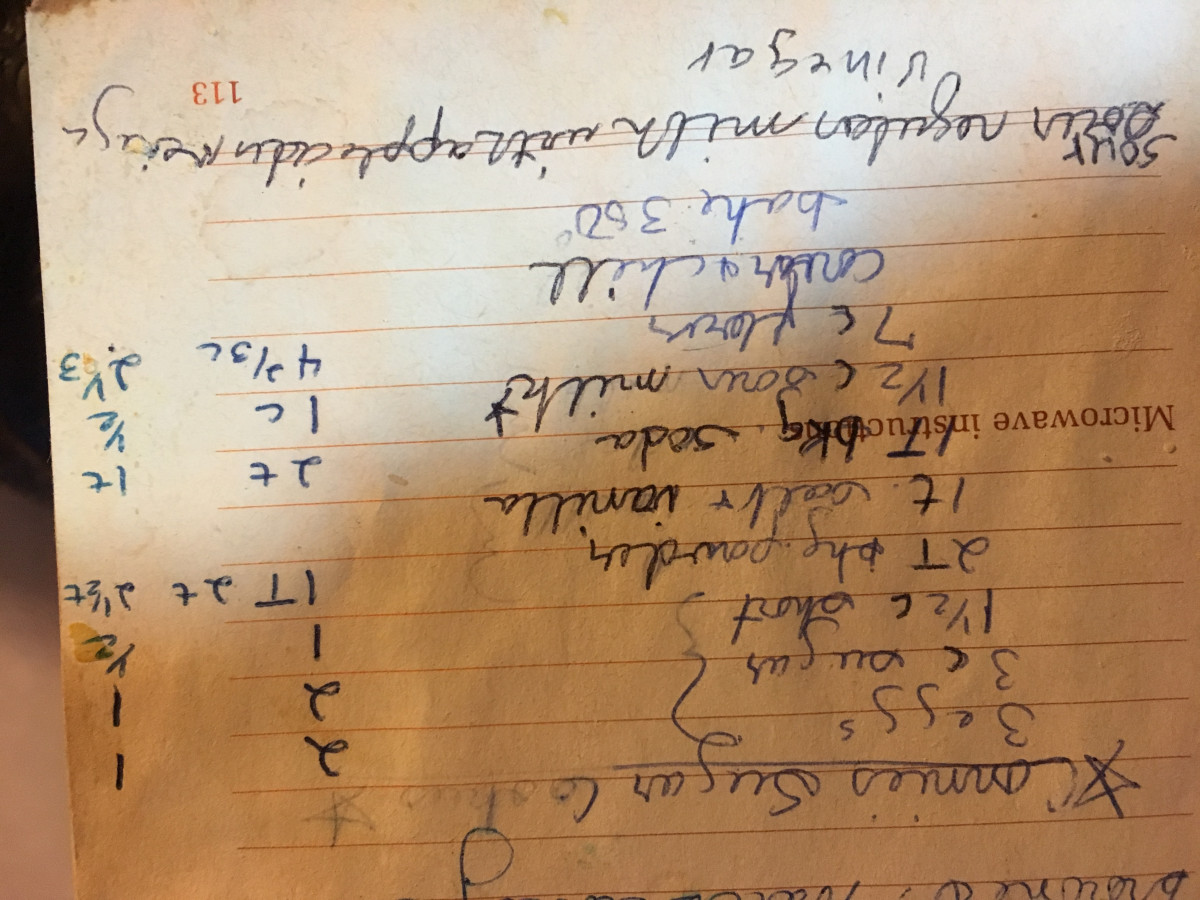 browned,
☆ Connies Sugar Cookies ☆
3 eggs 2 1
3 c sugar 2 1
1½ c short 1 ½ c
2T bkg. powder 1T 2t 2½t
1t. salt + vanilla
Microwave instructions
1T bkg. soda 2t 1t
1½ c sour milk* 1c ½c
7 c flour 4 2/3c 2 1/3
cover + chill
bake 350°
sour regular milk with apple cider
vinegar
113